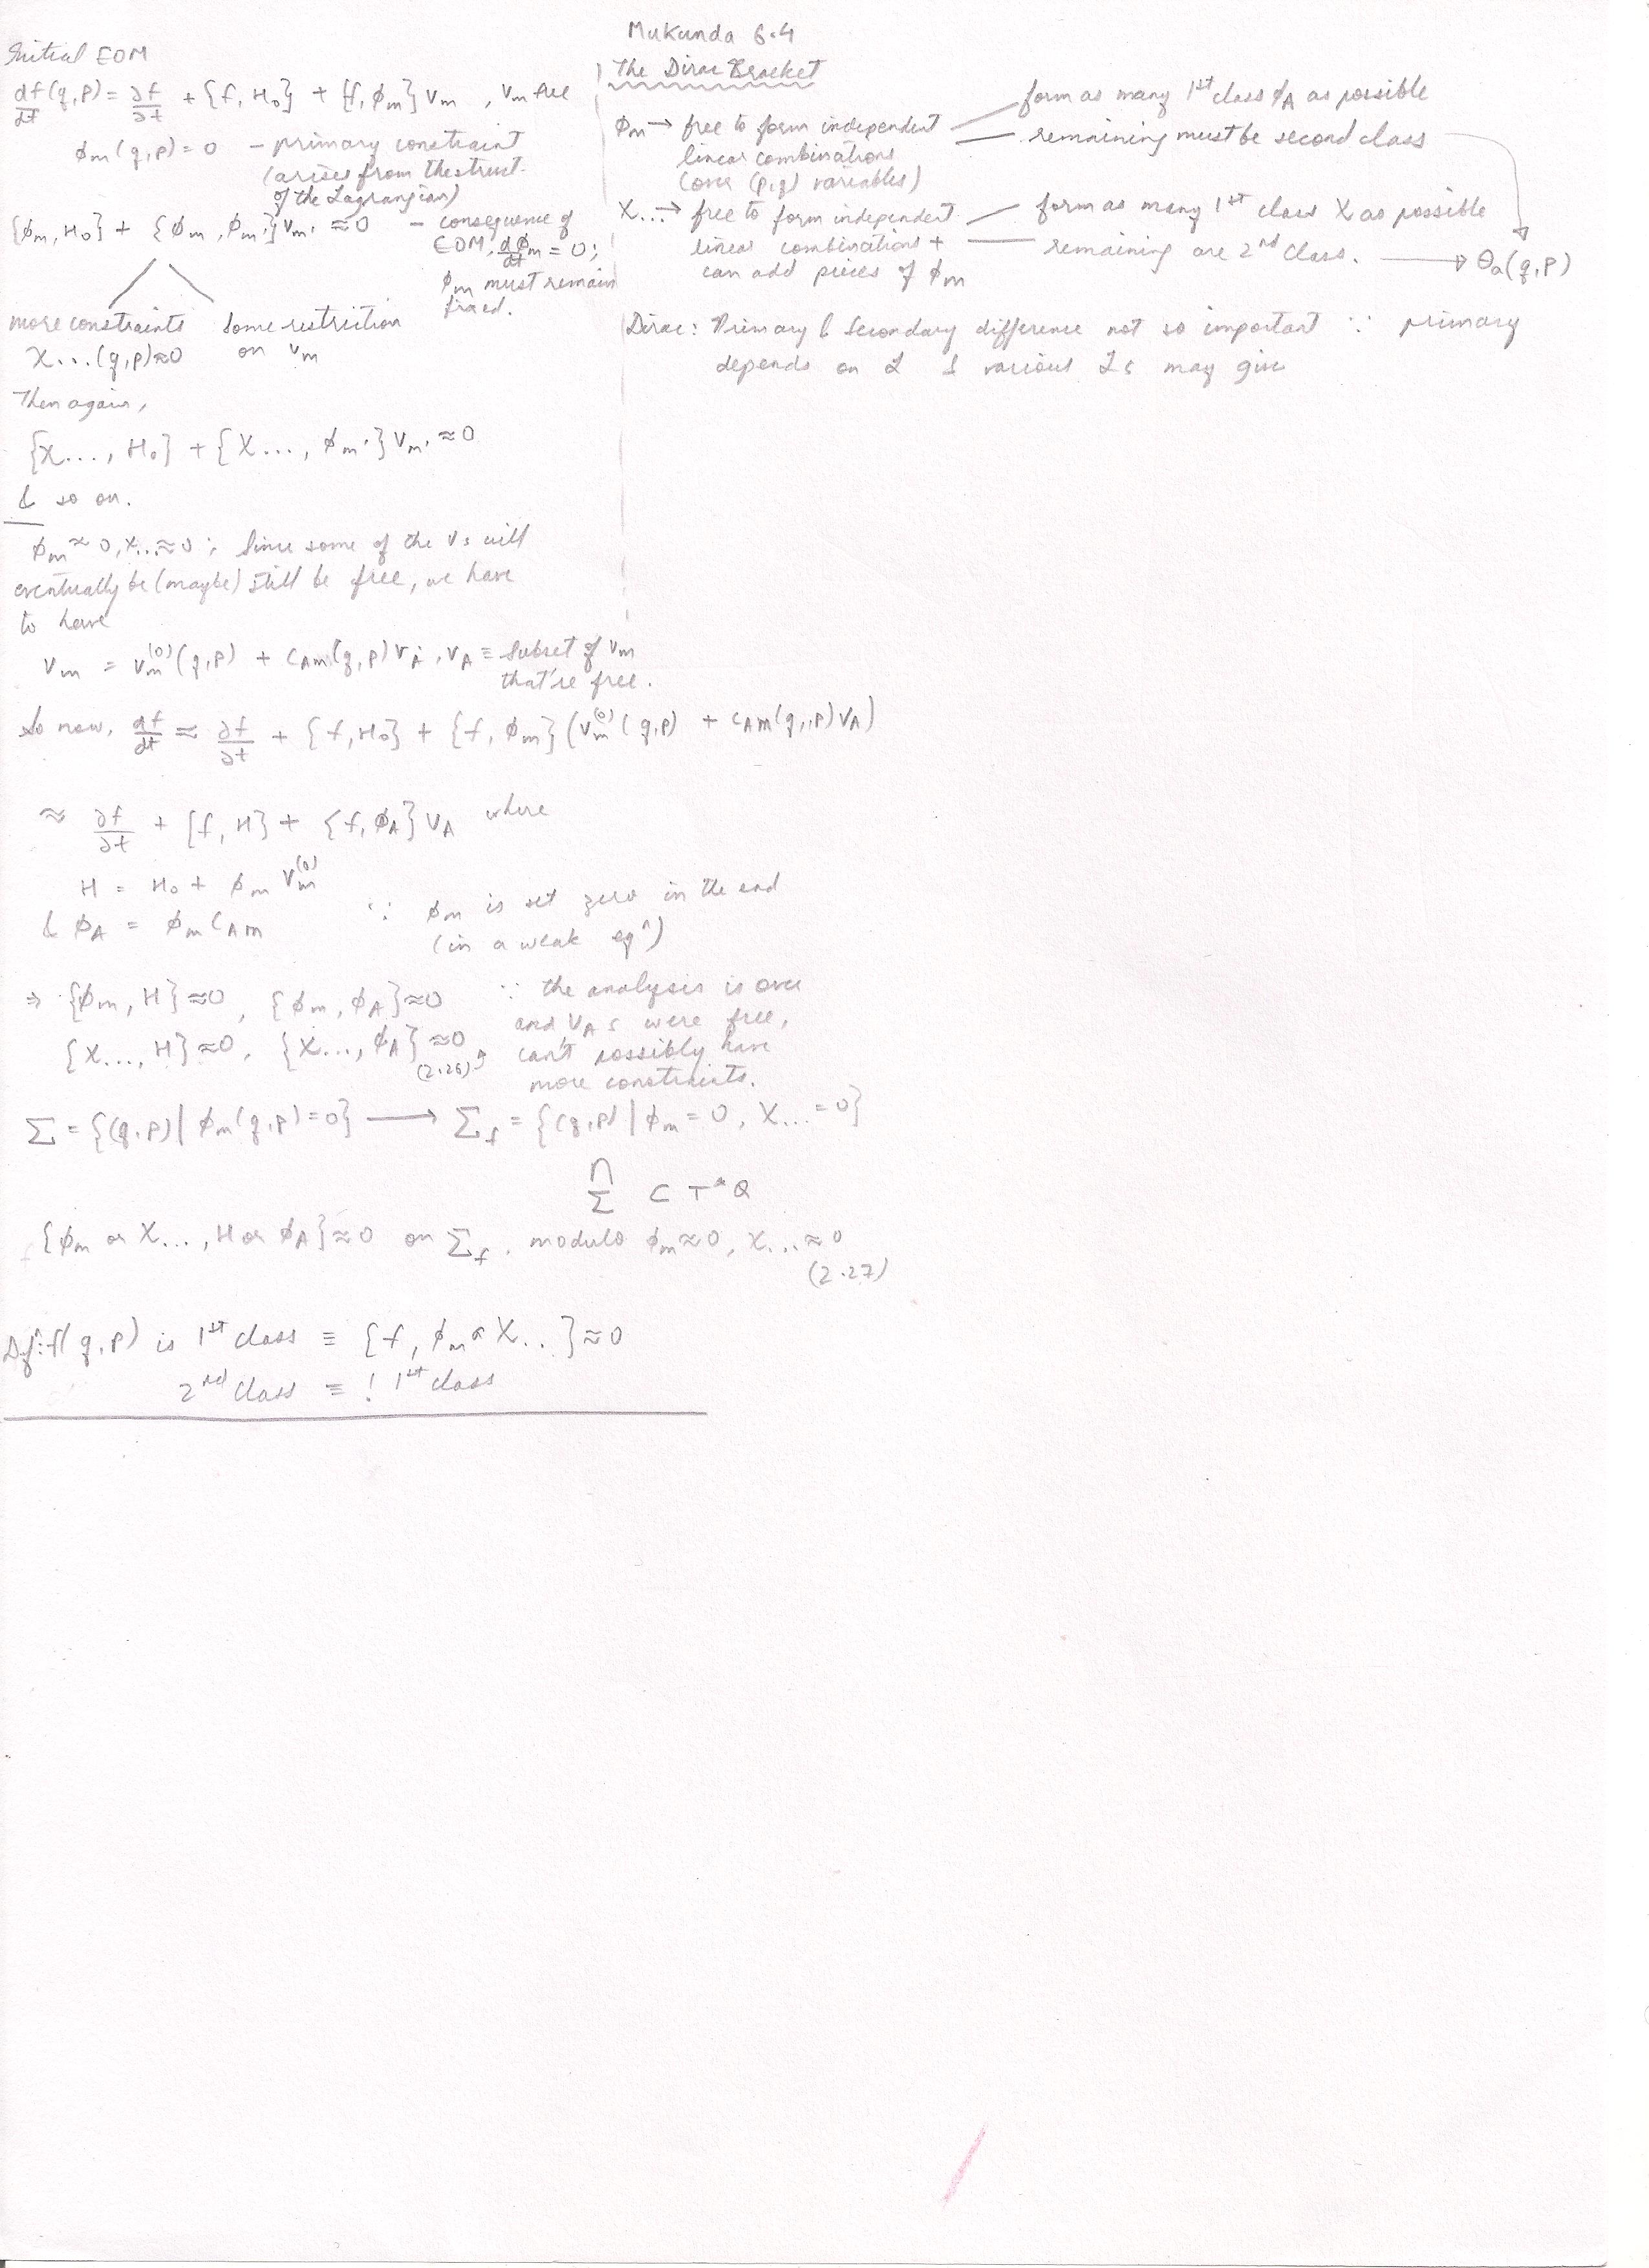 Mukunda 6.4
Initial EOM
df(q,p)/dt = ∂f/∂t + {f, H₀} + {f, ϕm} vm , vm free
ϕm(q,p) = 0 – primary constraint
(arises from the struct.
of the Lagrangian)
{ϕm, H₀} + {ϕm, ϕm'} vm' ≈ 0 – consequence of
EOM, dϕm/dt = 0;
ϕm must remain
fixed.
more constraints some restriction
χ...(q,p) ≈ 0 on vm
Then again,
{χ..., H₀} + {χ..., ϕm'} vm' ≈ 0
& so on.
ϕm ≈ 0, χ... ≈ 0 ; Since some of the vs will
eventually be (maybe) still be free, we have
to have
vm = vm⁽⁰⁾(q,p) + cAm(q,p) vA , vA ≡ subset of vm
that're free.
So now, df/dt ≈ ∂f/∂t + {f, H₀} + {f, ϕm} (vm⁽⁰⁾(q,p) + cAm(q,p) vA)
≈ ∂f/∂t + {f, H} + {f, ϕA} vA where
H = H₀ + ϕm vm⁽⁰⁾
& ϕA = ϕm cAm ∵ ϕm is set zero in the end
(in a weak eqⁿ)
⇒ {ϕm, H} ≈ 0, {ϕm, ϕA} ≈ 0 ∵ the analysis is over
and vAs were free,
{χ..., H} ≈ 0, {χ..., ϕA} ≈ 0 can't possibly have
(2.26) more constraints.
Σ = {(q,p) | ϕm(q,p) = 0} ⟶ Σf = {(q,p) | ϕm = 0, χ... = 0}
∩
Σ ⊂ T*Q
{ϕm or χ..., H or ϕA} ≈ 0 on Σf, modulo ϕm ≈ 0, χ... ≈ 0
(2.27)
Defⁿ: f(q,p) is 1st class ≡ {f, ϕm or χ...} ≈ 0
2nd class ≡ ! 1st class
The Dirac Bracket
ϕm → free to form independent
linear combinations
(over (p,q) variables)
form as many 1st class ϕA as possible
remaining must be second class
χ... → free to form independent
linear combinations +
can add pieces of ϕm
form as many 1st class χ as possible
remaining are 2nd class. ⟶ θa(q,p)
Dirac: Primary & Secondary difference not so important ∵ primary
depends on L & various Ls may give